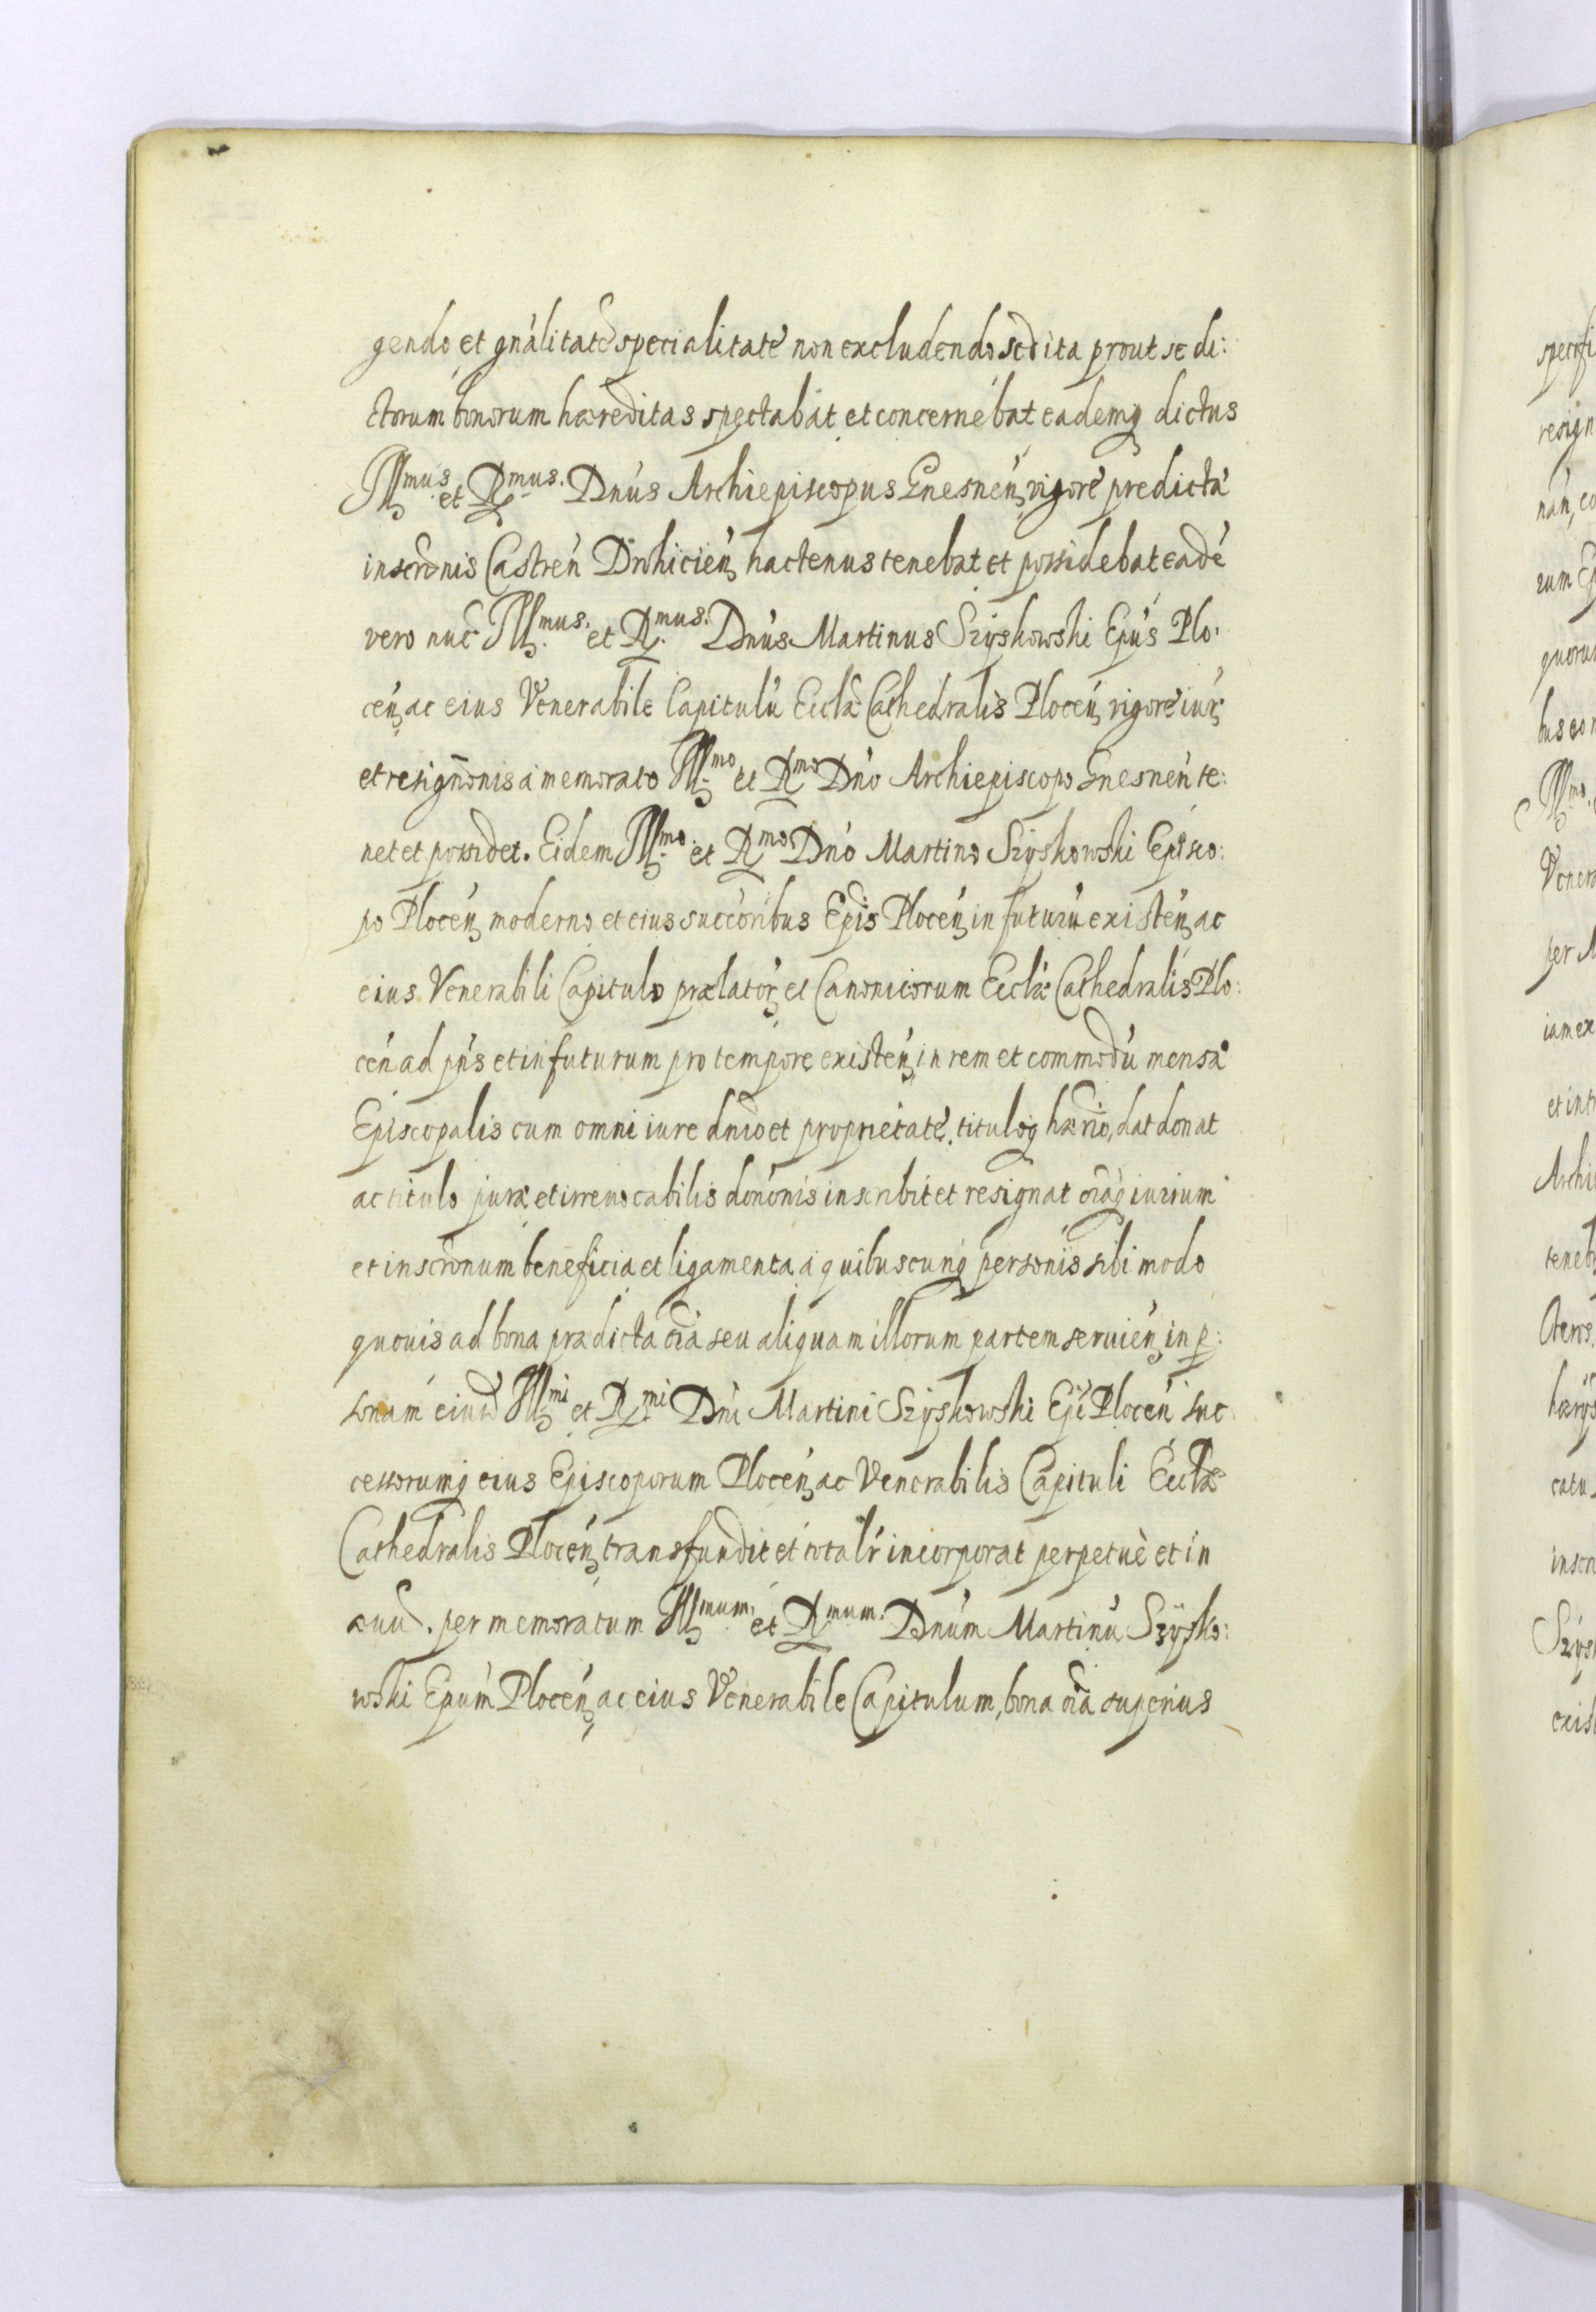 gendo et gnálitatē specialitate non excludendo sed ita prout se di:
ctorum bonorum hæreditas spectabat et concernebat eademq dictus
Illmus et Rmus. Dnús Archiepiscopus Gnesneń vigore predictæ
inscrōnis Castreń Drohicień hactenus tenebat et possidebat eadē
vero nuc Illmus. et Rmus. Dnús Martinus Szÿskowski Epús Plo:
ceń ac eius Venerabile Capitulū Ecclæ Cathedralis Ploceń vigore iur
et resignōnis á memorato Illmo et Rmo Dnó Archiepiscopo Gnesneń te:
net et possidet. Eidem Illmo et Rmo Dnó Martino Szÿskowski Episco:
po Ploceń moderno et eius succōribus Epis Ploceń in futurū existeń ac
eius Venerabili Capitulo prælator et Canonicorum Ecclæ Cathedralis Plo:
ceń ad pńs et in futurum pro tempore existeń in rem et commodū mensæ
Episcopalis cum omni iure dnio et proprietate, tituloq hærio, dat donat
ac titulo puræ et irreuocabilis donōnis inscribit et resignat oiaq iurium
et inscrōnum beneficia et ligamenta á quibuscunq personis sibi modo
quouis ad bona prædicta oia seu aliquam illorum partem seruień in p:
sonam eiusd Illmi et Rmi Dni Martini Szÿskowski Epi Ploceń suc:
cessorumq eius Episcoporum Ploceń ac Venerabilis Capituli Ecclæ
Cathedralis Ploceń transfundit et totalr incorporat perpetuè et in
æuū. per memoratum Illmum. et Rmum. Dnúm Martinū Szÿsko:
wski Epúm Ploceń ac eius Venerabile Capitulum, bona oia superius